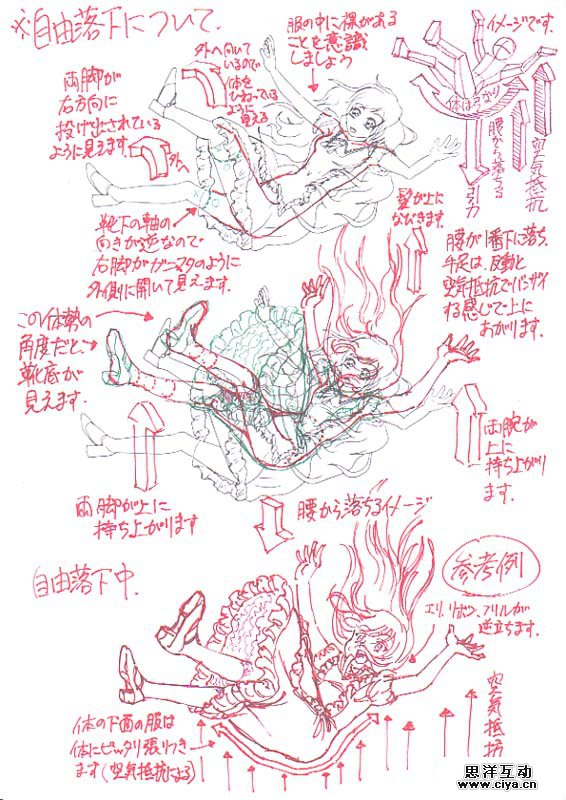 ※自由落下について.
服の中に裸がある
ことを意識
しましょう
イメージです。
外へ向いて
いるので
体を
ひねっている
ように
見える
両脚が
右方向に
投げ出されている
ように見えます。
外へ
体はつながり
腰から落ちる
ヨコカ
空気抵抗
靴下の軸の
向きが逆なので
右脚がガニマタのように
外側に開いて見えます。
髪が上に
なびきます。
腰が1番下に落ち、
手足は、反動と
空気抵抗でバンザイ
する感じで上に
あがります。
この体勢の
角度だと、
靴底が
見えます。
両腕が
上に
持ち上がり
ます。
両脚が上に
持ち上がります
腰から落ちるイメージ
自由落下中.
参考例
エリ、リボン、フリルが
逆立ちます.
空気抵抗
体の下面の服は
体にピッタリ張りつき
ます(空気抵抗による)
思洋互动
www.ciya.cn